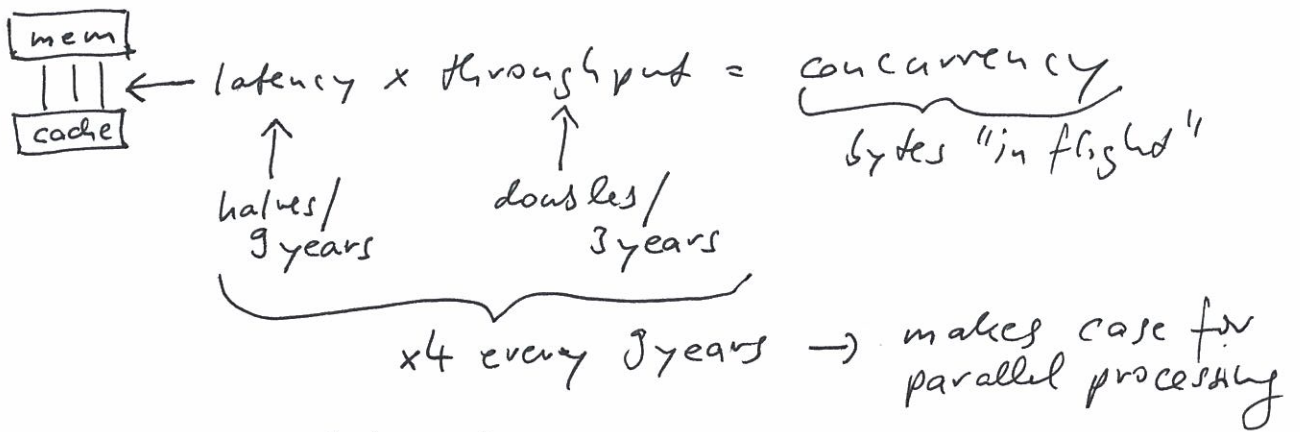 mem
cache
← latency x throughput = concurrency
bytes "in flight"
halves/
9 years
doubles/
3 years
x4 every 9 years → makes case for
parallel processing